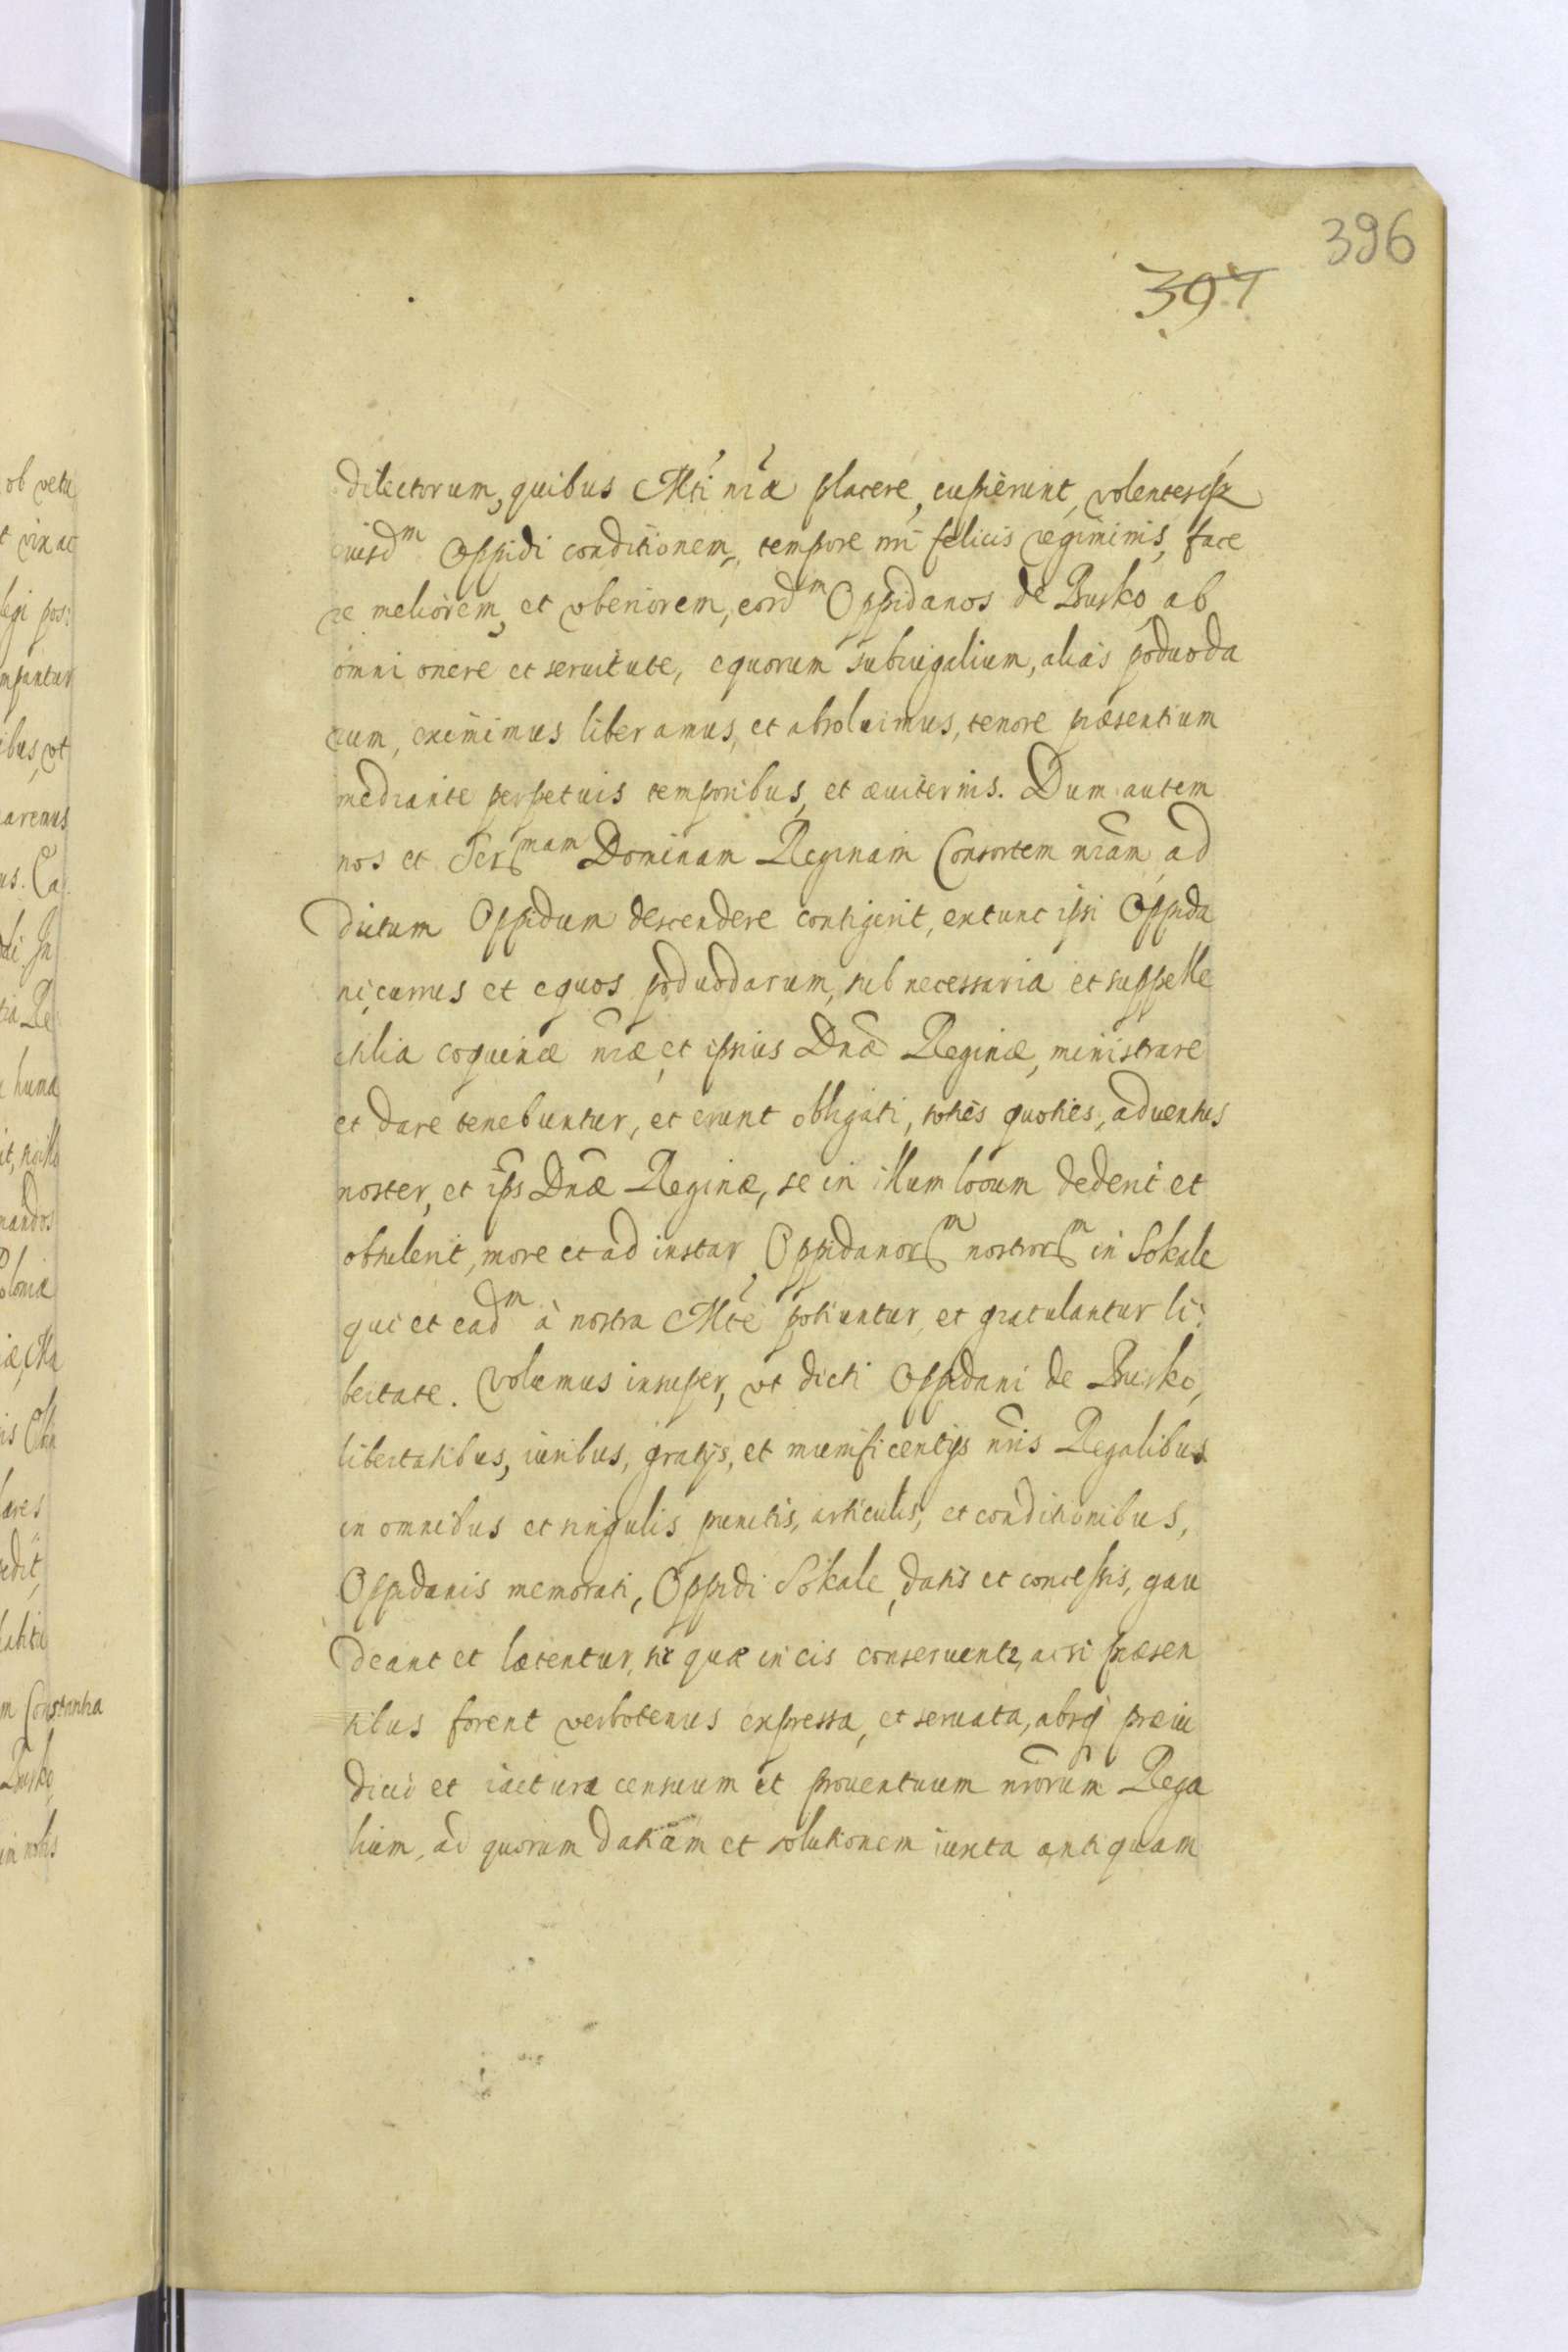 396
397
dilectorum, quibus Mti nrae placere, cupierunt, volentes
eiusdm Oppidi conditionem, tempore nri felicis regiminis, face
re meliorem, et vberiorem, eosdm Oppidanos de Busko, ab
omni onere et seruitute, equorum subiugalium, alias poduoda
rum, eximimus liberamus, et absoluimus, tenore praesentium
mediante perpetuis temporibus, et aeuiternis. Dum autem
nos et Sermam Dominam Reginam Consortem nram, ad
dictum Oppidum descendere contigerit, extunc ipsi Oppida
ni, currus et equos poduodarum, sub necessaria et suppelle
ctilia coquinae nrae, et ipsius Dnae Reginae, ministrare
et dare tenebuntur, et erunt obligati, toties quoties, aduentus
noster, et ips Dnae Reginae, se in illum locum dederit et
obtulerit, more et ad instar Oppidanorm nostrorm in Sokale
qui et eadm à nostra Mte potiuntur, et gratulantur li:
bertate. Volumus insuper, vt dicti Oppidani de Busko,
libertatibus, iuribus, gratijs, et munificentijs nris Regalibus
in omnibus et singulis punctis, articulis, et conditionibus,
Oppidanis memorati, Oppidi Sokale, datis et concessis, gau
deant et laetentur, sic quae in eis conseruentr, ac si praesen
tibus forent verbotenus expressa, et seruata, absq praeiu
dicio et iactura censuum et prouentuum nrorum Rega
lium, ad quorum datiam et solutionem iuxta antiquam
ob vetu
t vix ac
legi pos:
ibus, vt
us. Ca
huma
nandos
loniae
m Constantia
Busko